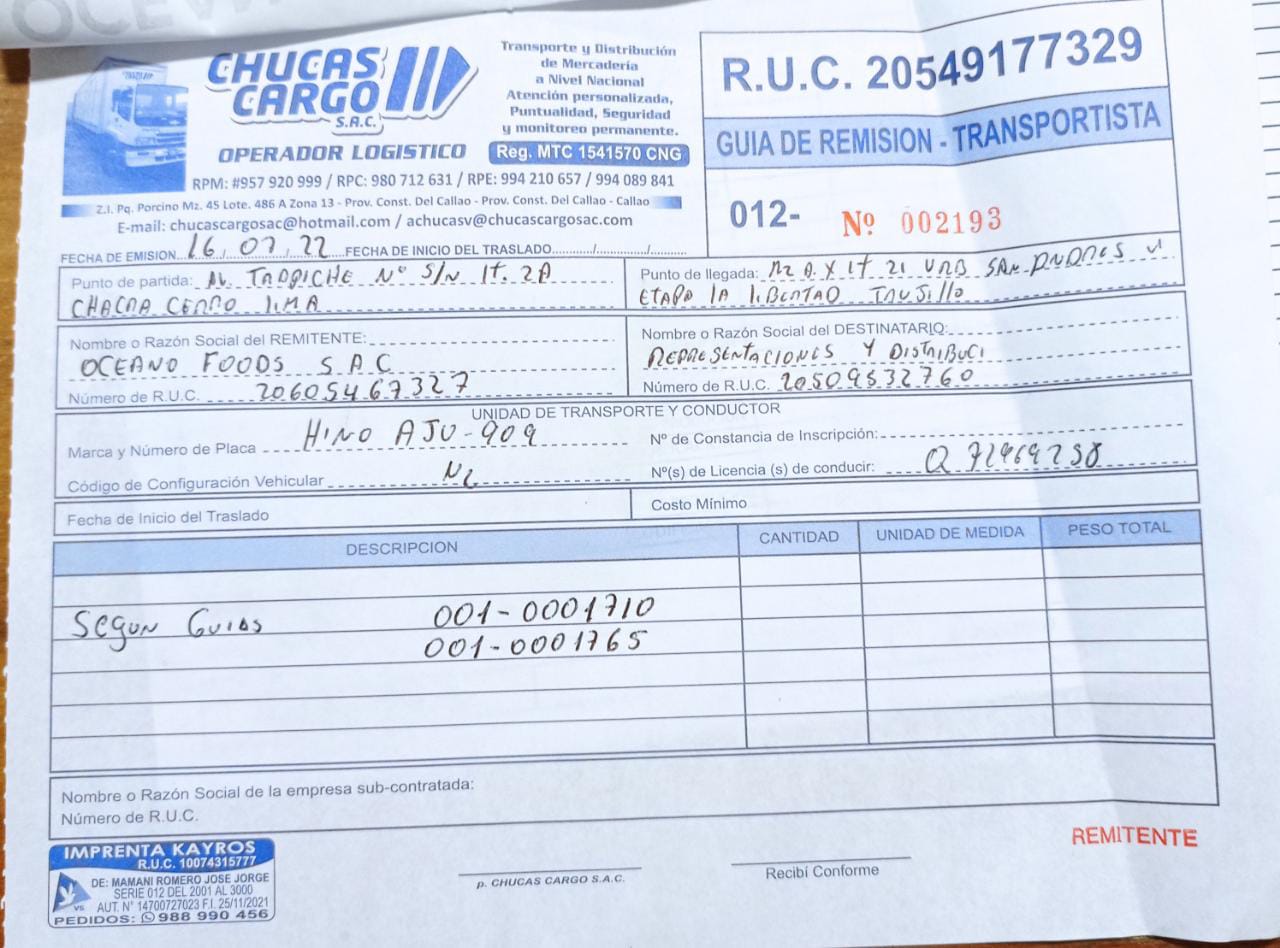 CHUCAS
CARGO
S.A.C.
OPERADOR LOGISTICO
Transporte y Distribución
de Mercadería
a Nivel Nacional
Atención personalizada,
Puntualidad, Seguridad
y monitoreo permanente.
Reg. MTC 1541570 CNG
RPM: #957 920 999 / RPC: 980 712 631 / RPE: 994 210 657 / 994 089 841
Z.I. Pq. Porcino Mz. 45 Lote. 486 A Zona 13 - Prov. Const. Del Callao - Prov. Const. Del Callao - Callao
E-mail: chucascargosac@hotmail.com / achucasv@chucascargosac.com
R.U.C. 20549177329
GUIA DE REMISION - TRANSPORTISTA
012- Nº 002193
FECHA DE EMISION 16/07/22 FECHA DE INICIO DEL TRASLADO
Punto de partida: AV. TRAPICHE Nº S/N lt. 2A
CHACRA CERRO LIMA
Punto de llegada: MZ A.X LT 21 URB SAN ANDRES V
ETAPA LA LIBERTAD TRUJILLO
Nombre o Razón Social del REMITENTE:
OCEANO FOODS S A C
Número de R.U.C. 20605467327
Nombre o Razón Social del DESTINATARIO:
REPRESENTACIONES Y DISTRIBUCI
Número de R.U.C. 20509532760
UNIDAD DE TRANSPORTE Y CONDUCTOR
Marca y Número de Placa HINO AJU-909
Nº de Constancia de Inscripción:
Código de Configuración Vehicular
Nº(s) de Licencia (s) de conducir: Q 72969238
Fecha de Inicio del Traslado
Costo Mínimo
DESCRIPCION CANTIDAD UNIDAD DE MEDIDA PESO TOTAL
SEGUN GUIAS 001-0001710
001-0001765
Nombre o Razón Social de la empresa sub-contratada:
Número de R.U.C.
REMITENTE
IMPRENTA KAYROS
R.U.C. 10074315777
DE: MAMANI ROMERO JOSE JORGE
SERIE 012 DEL 2001 AL 3000
AUT. N° 14700727023 F.I. 25/11/2021
PEDIDOS: 988 990 456
p. CHUCAS CARGO S.A.C.
Recibí Conforme